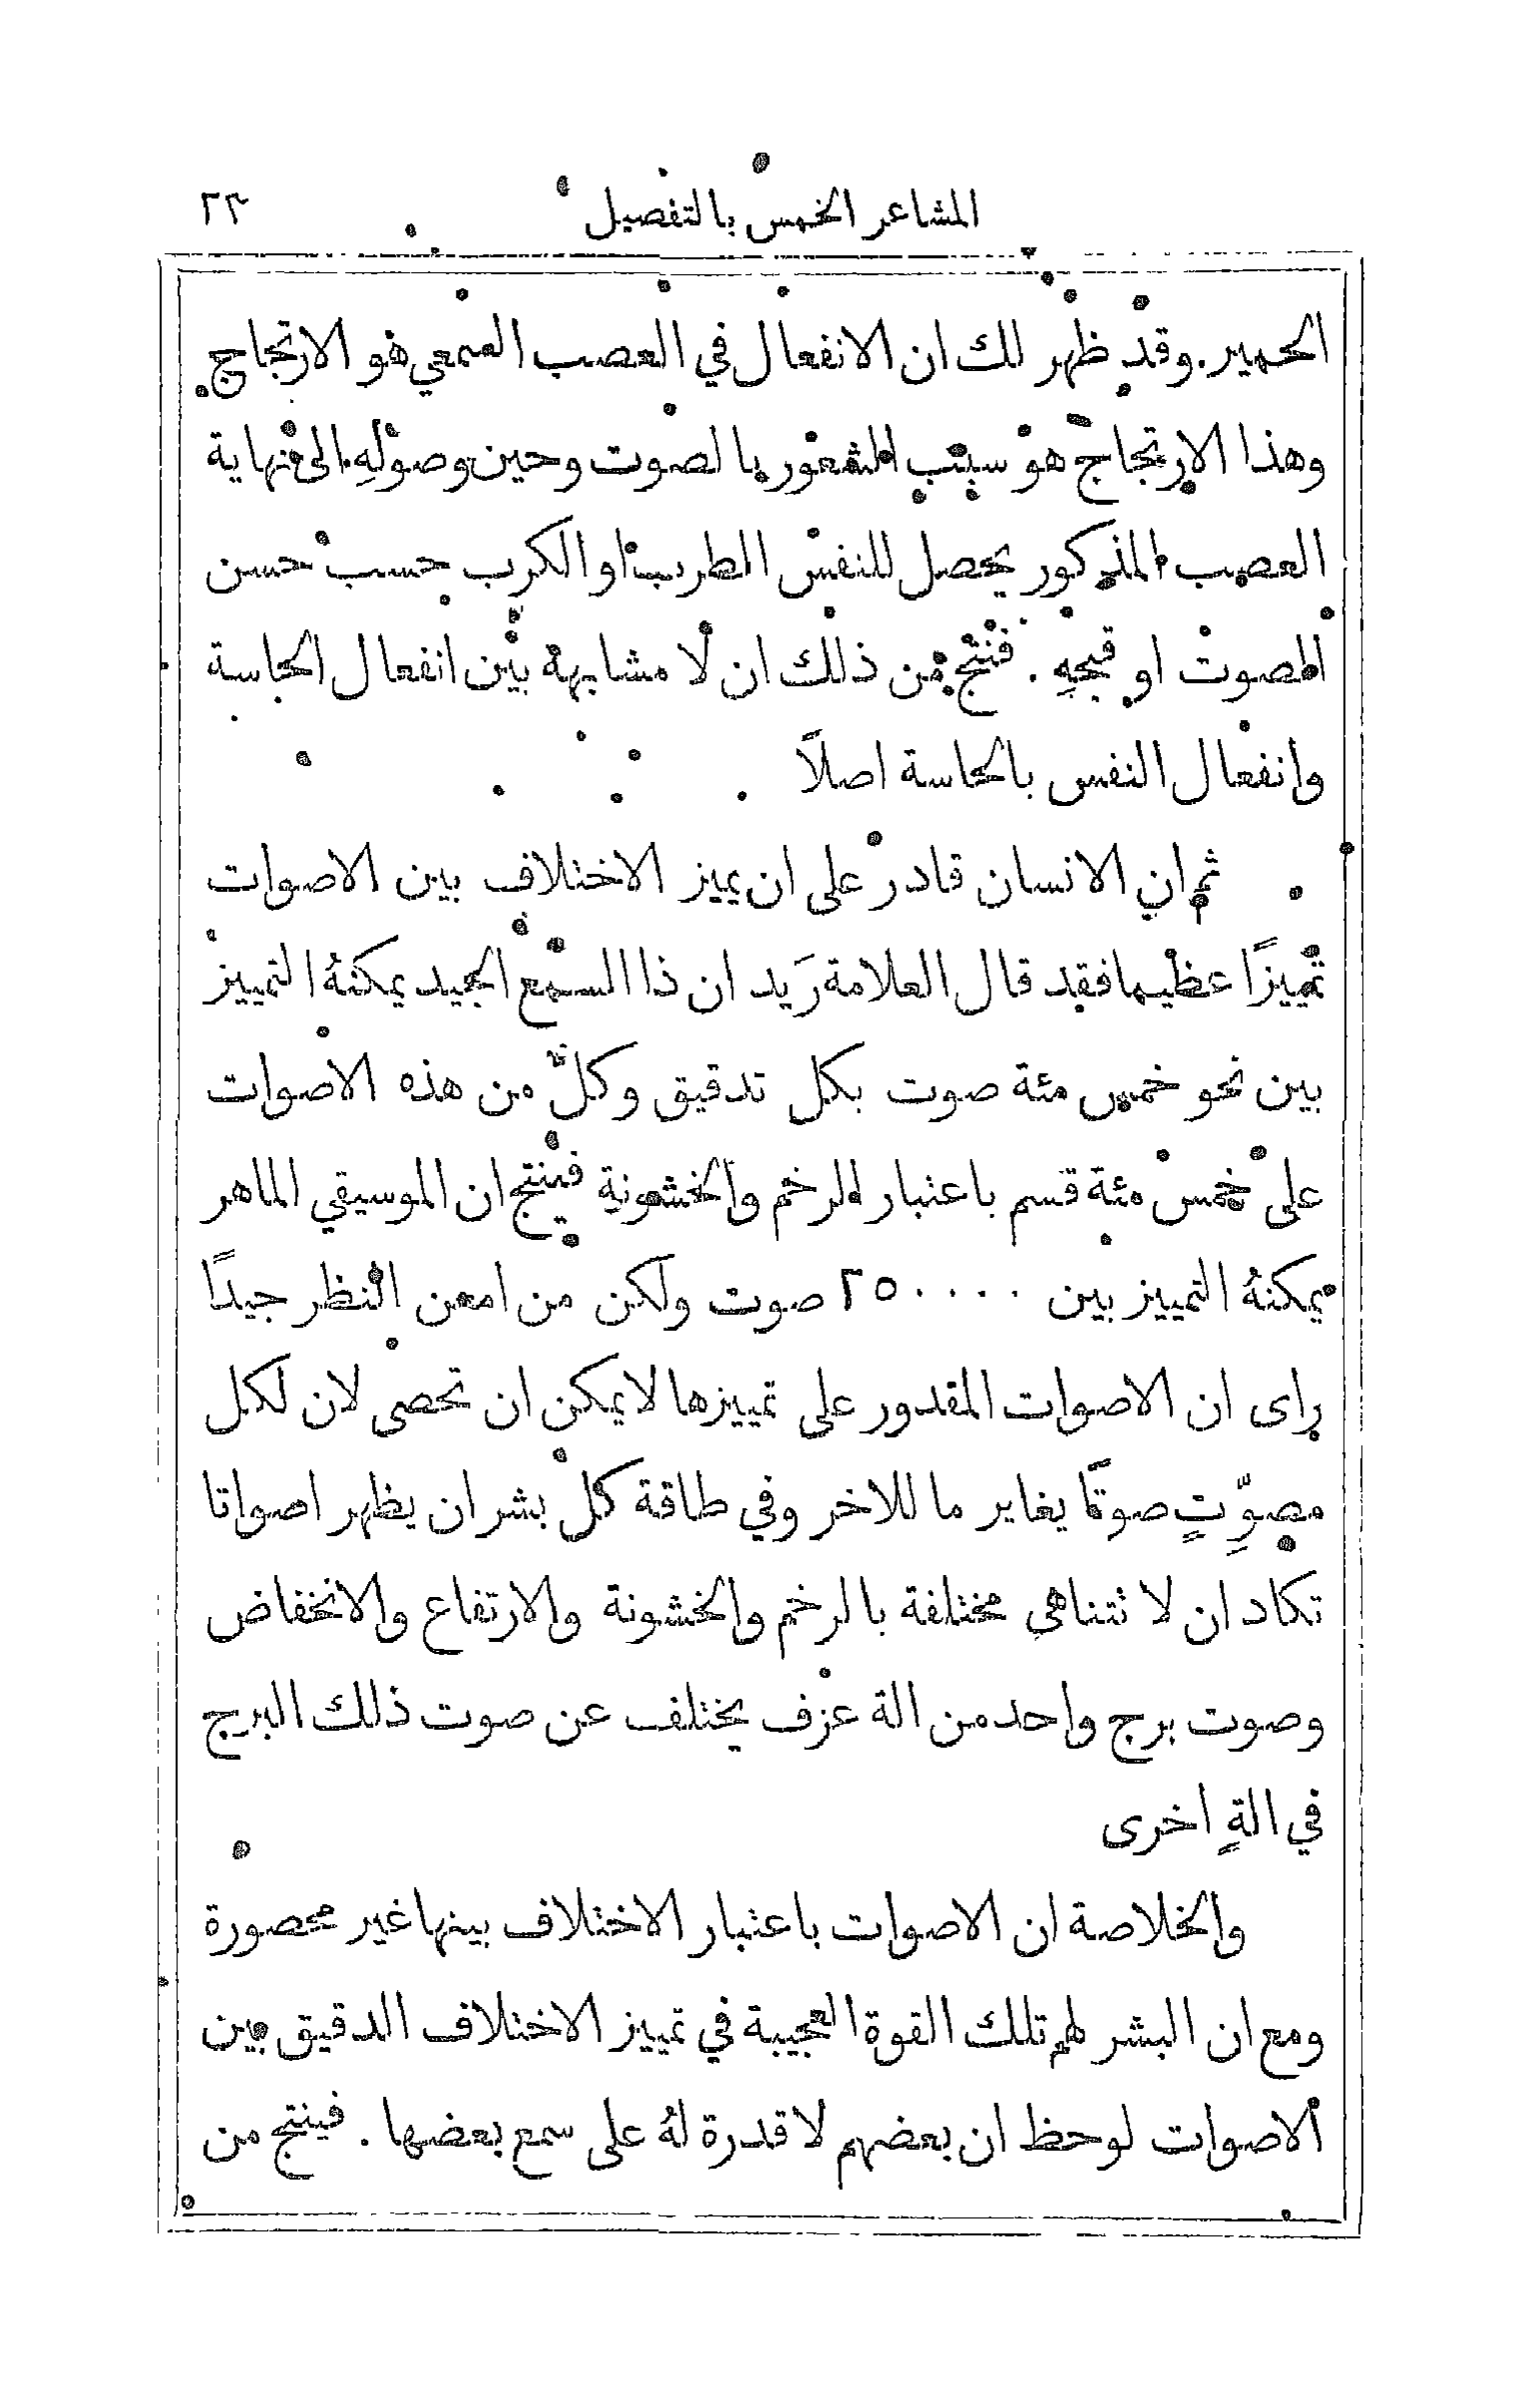 المشاعر الخمس بالتفصيل ٢٣
الحمير. وقد ظهر لك ان الانفعال في العصب السمعي هو الارتجاج
وهذا الارتجاج هو سبب الشعور بالصوت وحين وصولهِ الى نهاية
العصب المذكور يحصل للنفس الطرب او الكرب حسب حسن
الصوت او قبحهِ . فنتج من ذلك ان لا مشابهة بين انفعال الحاسة
وانفعال النفس بالحاسة اصلاً
ثم ان الانسان قادر على ان يميز الاختلاف بين الاصوات
تمييزًا عظيما فقد قال العلامة رَيد ان ذا السمع الجيد يمكنهُ التمييز
بين نحو خمس مئة صوت بكل تدقيق وكلٌّ من هذه الاصوات
على خمس مئة قسم باعتبار الرخم والخشونة فينتج ان الموسيقي الماهر
يمكنهُ التمييز بين ٢٥٠٠٠٠ صوت ولكن من امعن النظر جيدًا
راى ان الاصوات المقدور على تمييزها لا يمكن ان تحصى لان لكل
مصوِّتٍ صوتًا يغاير ما للاخر وفي طاقة كل بشر ان يظهر اصواتا
تكاد ان لا تتناهى مختلفة بالرخم والخشونة والارتفاع والانخفاض
وصوت برج واحد من الة عزف يختلف عن صوت ذلك البرج
في الةٍ اخرى
والخلاصة ان الاصوات باعتبار الاختلاف بينها غير محصورة
ومع ان البشر لهم تلك القوة العجيبة في تمييز الاختلاف الدقيق بين
الاصوات لوحظ ان بعضهم لا قدرة لهُ على سمع بعضها . فينتج من